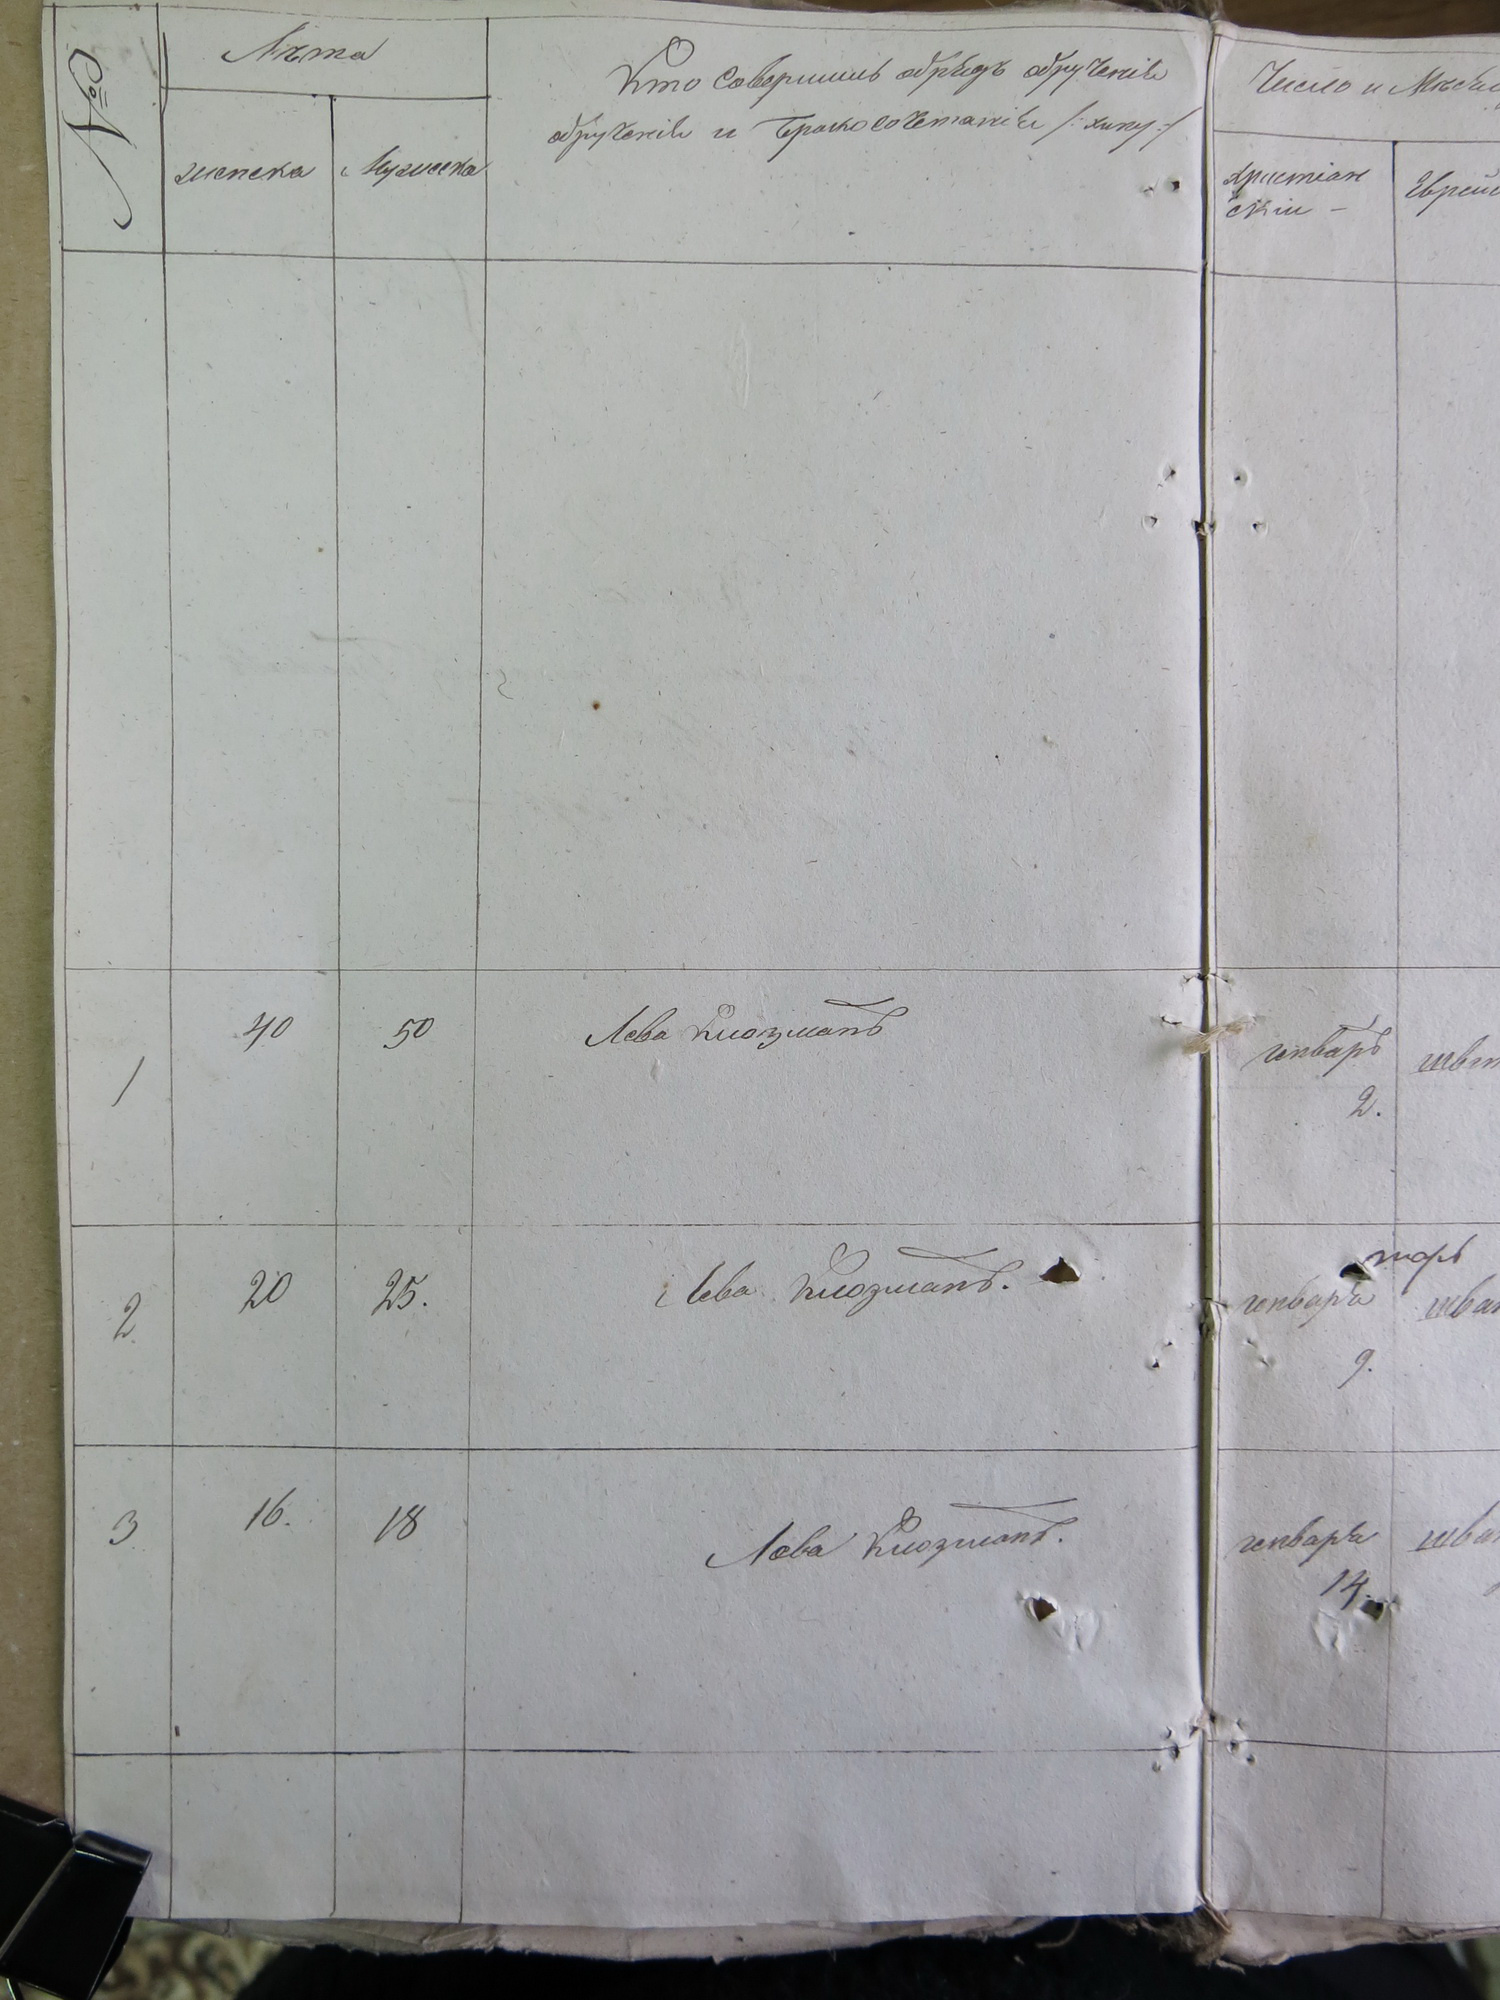 №
Лѣта
женска
Мужеска
Кто Совершилъ обрядъ обрученія
обрученія и Бракосочетанія /:хипу:/
Число и Мѣсяц
христіан
скіи -
Еврей
1
40
50
Лева Клозманъ
генваръ
2.
швт
2
20
25.
Лева Клозманъ.
генваря
9.
шва
3
16.
18
Лева Клозманъ.
генваря
14.
шва